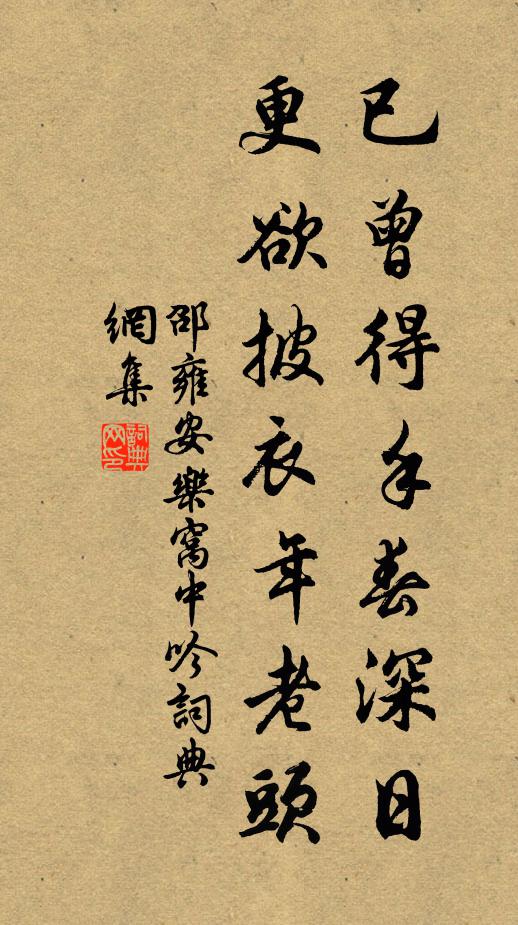 已曾得手春深日
更欲披衣年老頭
邵雍安樂窩中吟詞典
網集
詞典網印